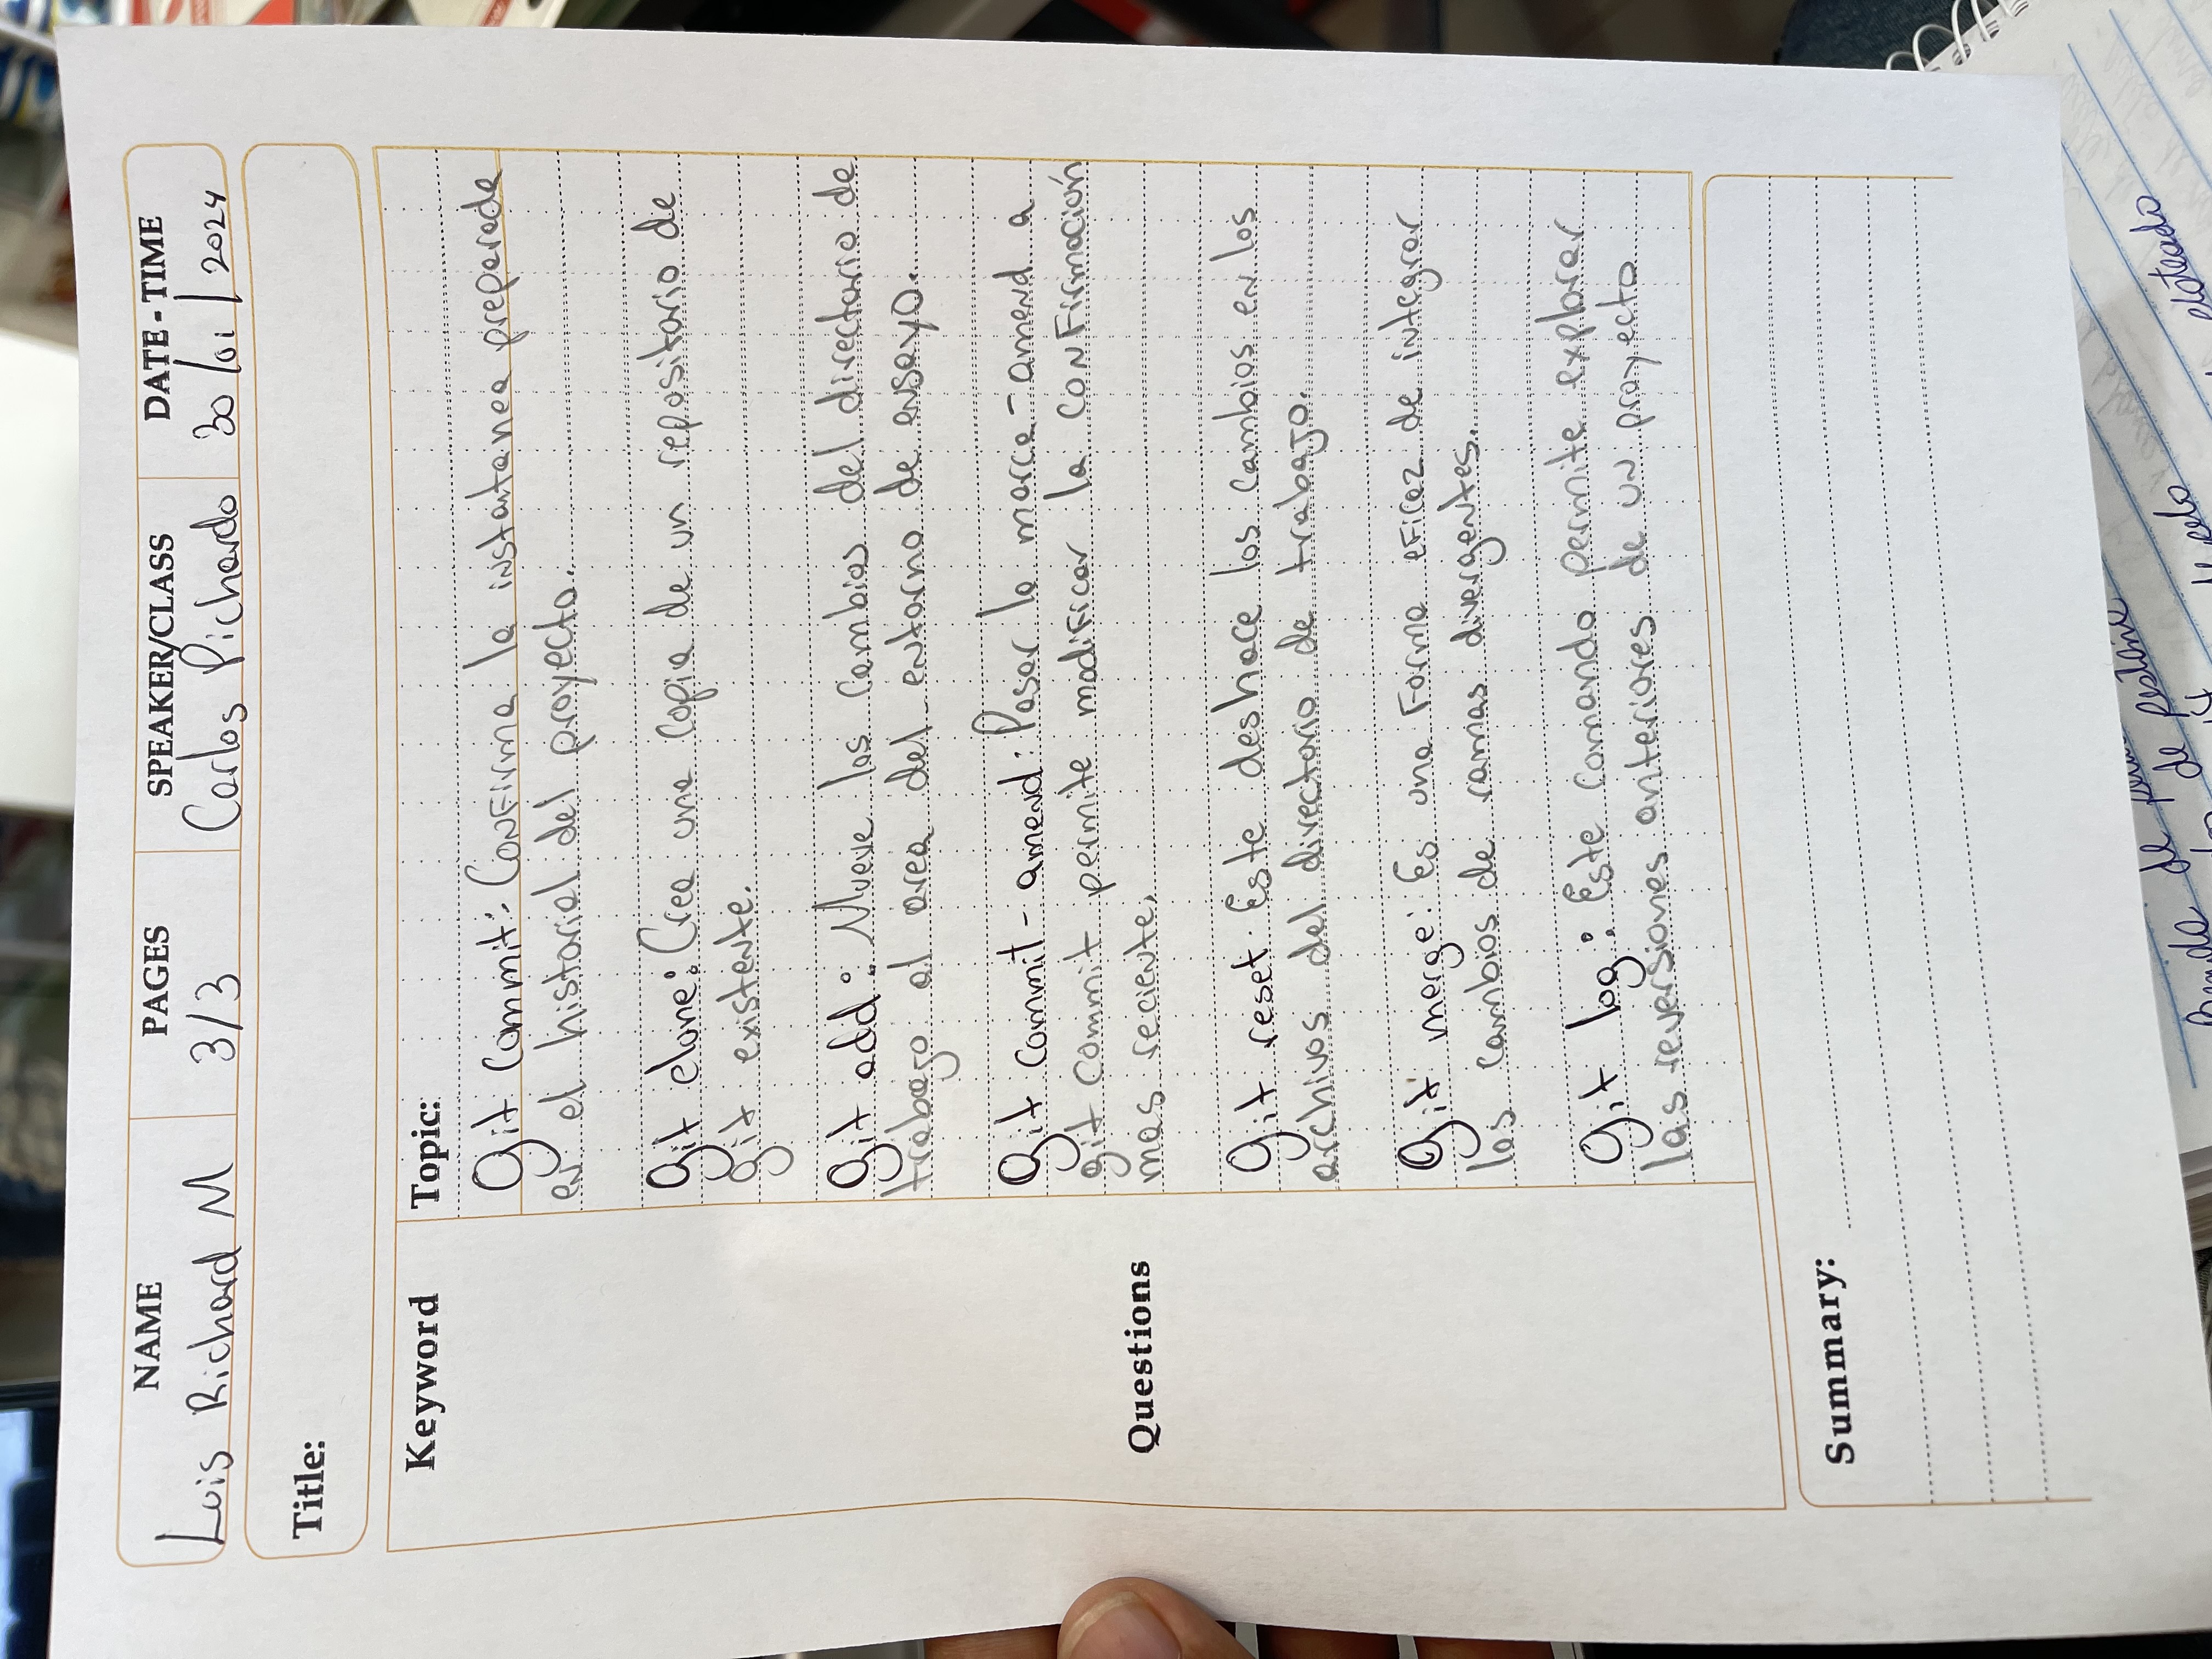 NAME PAGES SPEAKER/CLASS DATE - TIME
Luis Richard M 3/3 Carlos Pichardo 30/01/2024
Title:
Keyword Topic:
Git Commit: Confirma la instantanea preparada
en el historial del proyecto.
Git clone: Crea una copia de un repositorio de
git existente.
Git add: Mueve los cambios del directorio de
trabajo al area del entorno de ensayo.
Git commit-amend: Pasar la marca-amend a
git commit permite modificar la confirmación
Questions mas reciente.
Git reset Este deshace los cambios en los
archivos del directorio de trabajo.
Git merge: Es una forma eficaz de integrar
los cambios de ramas divergentes.
Git log: Este comando permite explorar
las reversiones anteriores de un proyecto
Summary:
de
de
14 ploteado